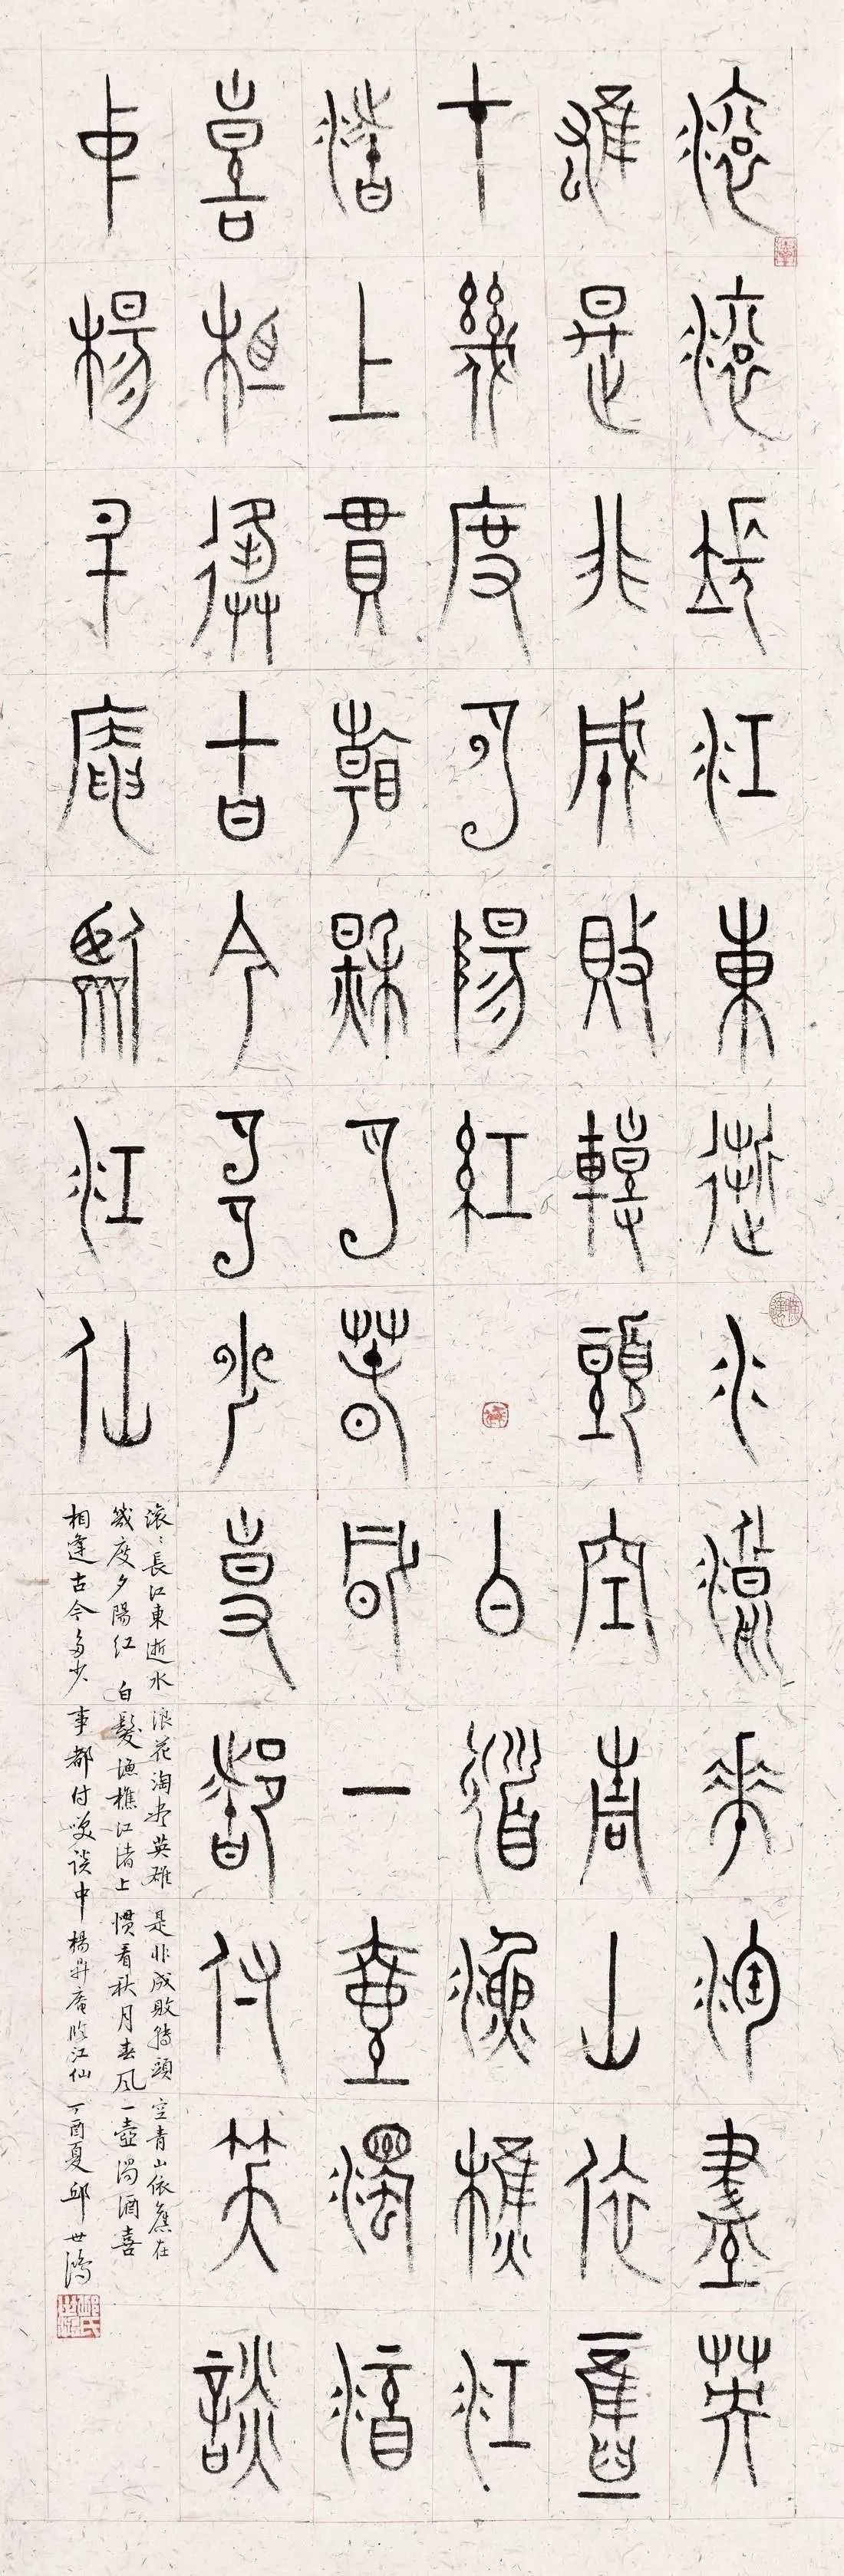 滚滚長江東逝水浪花淘盡英
雄是非成敗轉頭空青山依舊
在幾度夕陽紅白髮漁樵江
渚上慣看秋月春風一壺濁酒
喜相逢古今多少事都付笑談
中楊升庵臨江仙
滚〻長江東逝水浪花淘尽英雄是非成敗轉頭空青山依舊在
幾度夕陽红白髮漁樵江渚上慣看秋月春风一壺濁酒喜
相逢古今多少事都付笑談中楊升庵臨江仙丁酉夏邱世鴻